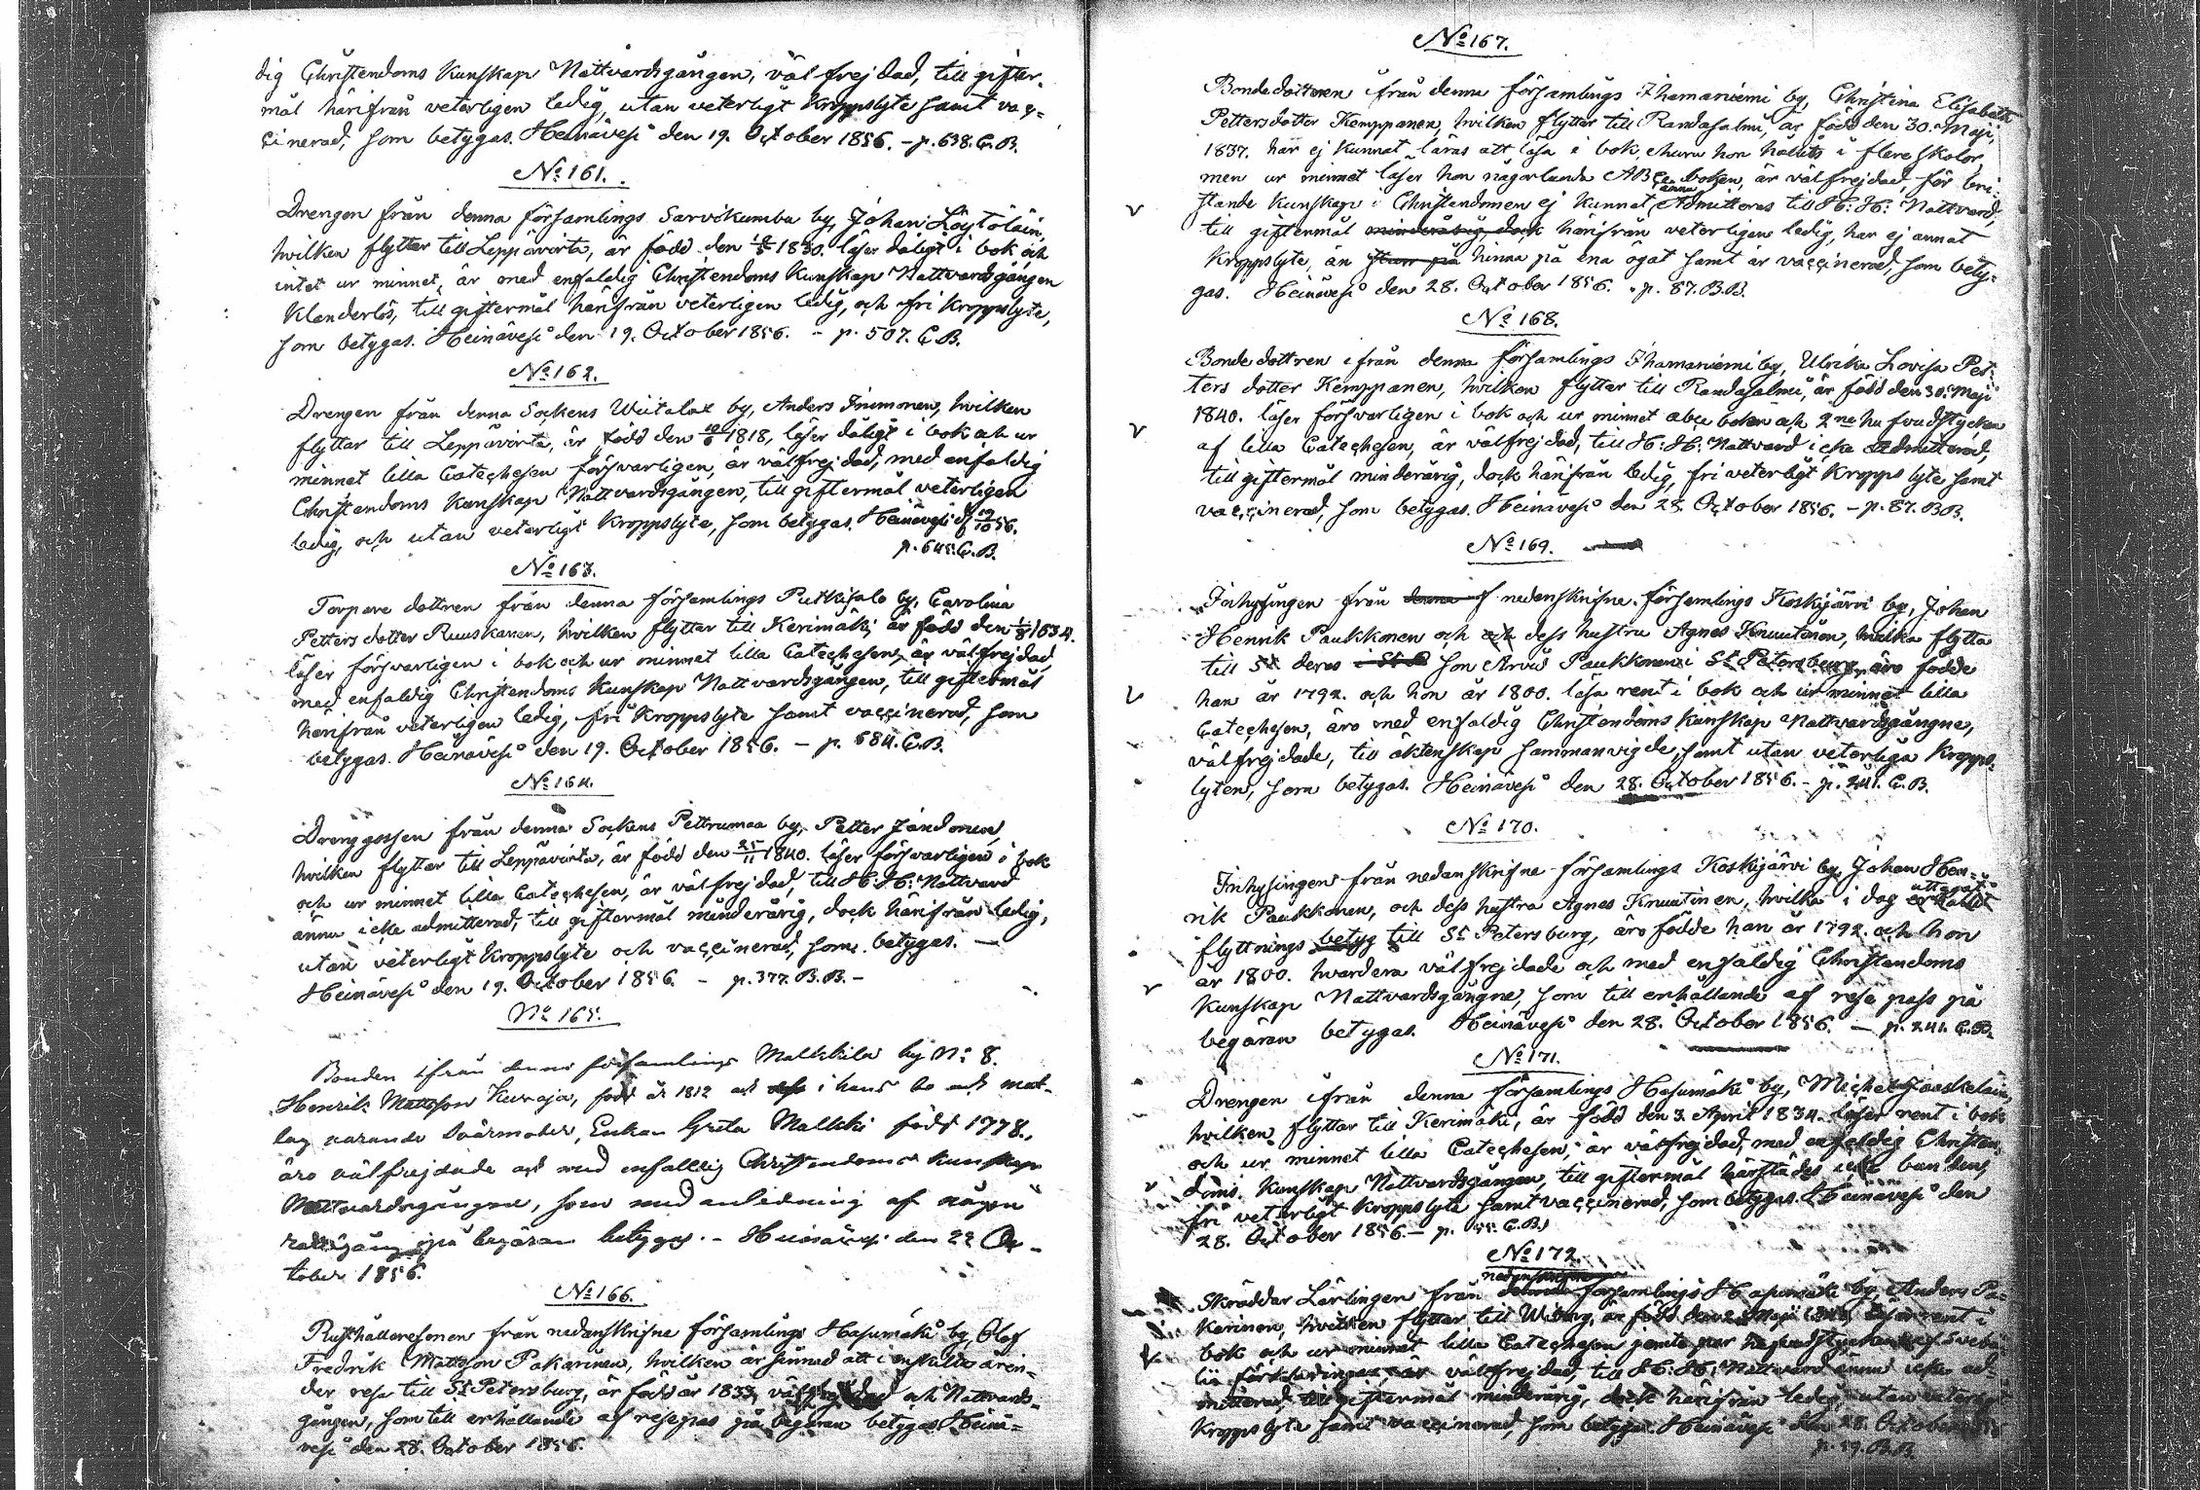 dig Christendoms Kunskap Nattvardsgången, väl frejdad, till gifter-
mål härifrån veterligen ledig, utan veterligt Kroppslyte samt vac-
cinerad, som betygas. Heinävesi den 19. October 1856. – p. 638. C.B.
No 161.
Drengen från denna församlings Sarvikumbu by, Johan Löytöläin,
hvilken flyttar till Leppävirta, är född den 1830. läser dåligt i bok och
intet ur minnet, är med enfaldig Christendoms Kunskap Nattvardsgången
Klanderlös, till giftermål härifrån veterligen ledig, och fri Kroppslyte,
som betygas. Heinävesi den 19. October 1856. – p. 507. C.B.
No 162.
Drengen från denna Sockens by, Anders Immonen, hvilken
flyttar till Leppävirta, är född den 1818, läser dåligt i bok och ur
minnet lilla Catechesen försvarligen, är välfrejdad, med enfaldig
Christendoms Kunskap Nattvardsgången, till giftermål veterligen
ledig, och utan veterligt Kroppslyte, som betygas. Heinävesi d. 19/10 56.
p. 645. C.B.
No 163.
Torpare dottren från denna församlings Putkisalo by, Carolina
Petters dotter Ruuskanen, hvilken flyttar till Kerimäki är född den 1834.
läser försvarligen i bok och ur minnet lilla Catechesen, är välfrejdad,
med enfaldig Christendoms Kunskap Nattvardsgången, till giftermål
härifrån veterligen ledig, fri Kroppslyte samt vaccinerad, som
betygas. Heinävesi den 19. October 1856. – p. 684. C.B.
No 164.
Drenggossen från denna Sockens Pettrumaa by, Petter Jändonen,
hvilken flyttar till Leppävirta, är född den 25/11 1840. läser försvarligen i bok
och ur minnet lilla Catechesen, är välfrejdad, till H: H: Nattvard
ännu icke admitterad, till giftermål minderårig, dock härifrån ledig,
utan veterligt Kroppslyte och vaccinerad, som betygas. –
Heinävesi den 19. October 1856. – p. 377. B.B. –
No 165.
Bonden ifrån denna församlings Malkkila by No 8.
Henrik Mattsson Kuvaja, född år 1812 och i hans bo och mat-
lag varande Svärmoder, Enkan Greta Malkki född 1778.,
äro välfrejdade och med enfaldig Christendoms kunskap
Nattvardsgångne, som med anledning af någon
rättegång på begäran betygas. – Heinävesi den 22 Oc-
tober 1856.
No 166.
Rusthållaresonen från nedanskrifne församlings Hasumäki by, Olof
Fredrik Mattsson Pakarinen, hvilken är sinnad att i enskildte ären-
der resa till St Petersburg, är född år 1833, välfrejdad och Nattvards-
gången, som till erhållande af resepas på begäran betygas. Heinä-
vesi den 28. October 1856.
No 167.
Bondedottren ifrån denna församlings Ihamaniemi by, Christina Elisabeth
Pettersdotter Kemppanen, hvilken flyttar till Randasalmi, är född den 30. Maji,
1837. har ej kunnat läras att läsa i bok, ehuru hon hållits i flere skolor,
men ur minnet läser hon någorlunda ABCe boken, är välfrejdad, för bri-
stande Kunskap i Christendomen ej kunnat ännu Admitteras till H: H: Nattvard,
till giftermål minderårig, dock härifrån veterligen ledig, har ej annat
Kroppslyte, än hinna på ena ögat samt är vaccinerad, som bety-
gas. Heinävesi den 28. October 1856. – p. 87. B.B.
No 168.
Bonde dottren ifrån denna församlings Ihamaniemi by, Ulrika Lovisa Pet-
ters dotter Kemppanen, hvilken flyttar till Randasalmi, är född den 30. Maji
1840. läser försvarligen i bok och ur minnet abce boken och 2ne hufvudstycken
af lilla Catechesen, är välfrejdad, till H: H: Nattvard icke Admitterad,
till giftermål minderårig, dock härifrån ledig, fri veterligt Kroppslyte samt
vaccinerad, som betygas. Heinävesi den 28. October 1856. – p. 87. B.B.
No 169.
Inhysingen från denna af nedanskrifne församlings Koskijärvi by, Johan
Henrik Paukkonen, och dess hustru Agnes Knuutinen, hvilka flytta
till deras son Arvid Paukkonen i St Petersburg, äro födde
han år 1792. och hon år 1800. läsa rent i bok och ur minnet lilla
Catechesen, äro med enfaldig Christendoms kunskap Nattvardsgångne,
välfrejdade, till äktenskap sammanvigde, samt utan veterliga Kropps-
lyten, som betygas. Heinävesi den 28. October 1856. – p. 241. C.B.
No 170.
Inhysingen från nedanskrifne församlings Koskijärvi by, Johan Hen-
rik Paukkonen, och dess hustru Agnes Knuutinen, hvilka i dag uttagit
flyttnings betyg till St Petersburg, äro födde han år 1792. och hon
år 1800. hvardera välfrejdade och med enfaldig Christendoms
Kunskap Nattvardsgångne, som till erhållande af rese pass på
begäran betygas. Heinävesi den 28. October 1856. – p. 241. C.B.
No 171.
Drengen ifrån denna församlings Hasumäki by, Michel Jääskeläin,
hvilken flyttar till Kerimäki, är född den 3. April 1834. läser rent i bok
och ur minnet lilla Catechesen, är välfrejdad, med enfaldig Christen-
doms Kunskap Nattvardsgången, till giftermål härstädes icke bunden,
fri veterligt Kroppslyte samt vaccinerad, som betygas. Heinävesi den
28. October 1856. – p. C.B.
No 172.
nedanskrifne
Skräddar Lärlingen från församlings Hasumäki by, Anders Pa-
karinen, hvilken flyttar till Wiborg, är född den Maji läser rent i
bok och ur minnet lilla Catechesen jemte par hufvudstycken af Svebi-
lii förklaringar, är välfrejdad, till H: H: Nattvard ännu icke ad-
mitterad, till giftermål minderårig, dock härifrån ledig, utan veterligt
Kroppslyte samt vaccinerad, som betygas. Heinävesi den 28. October
p. 59. B.B.